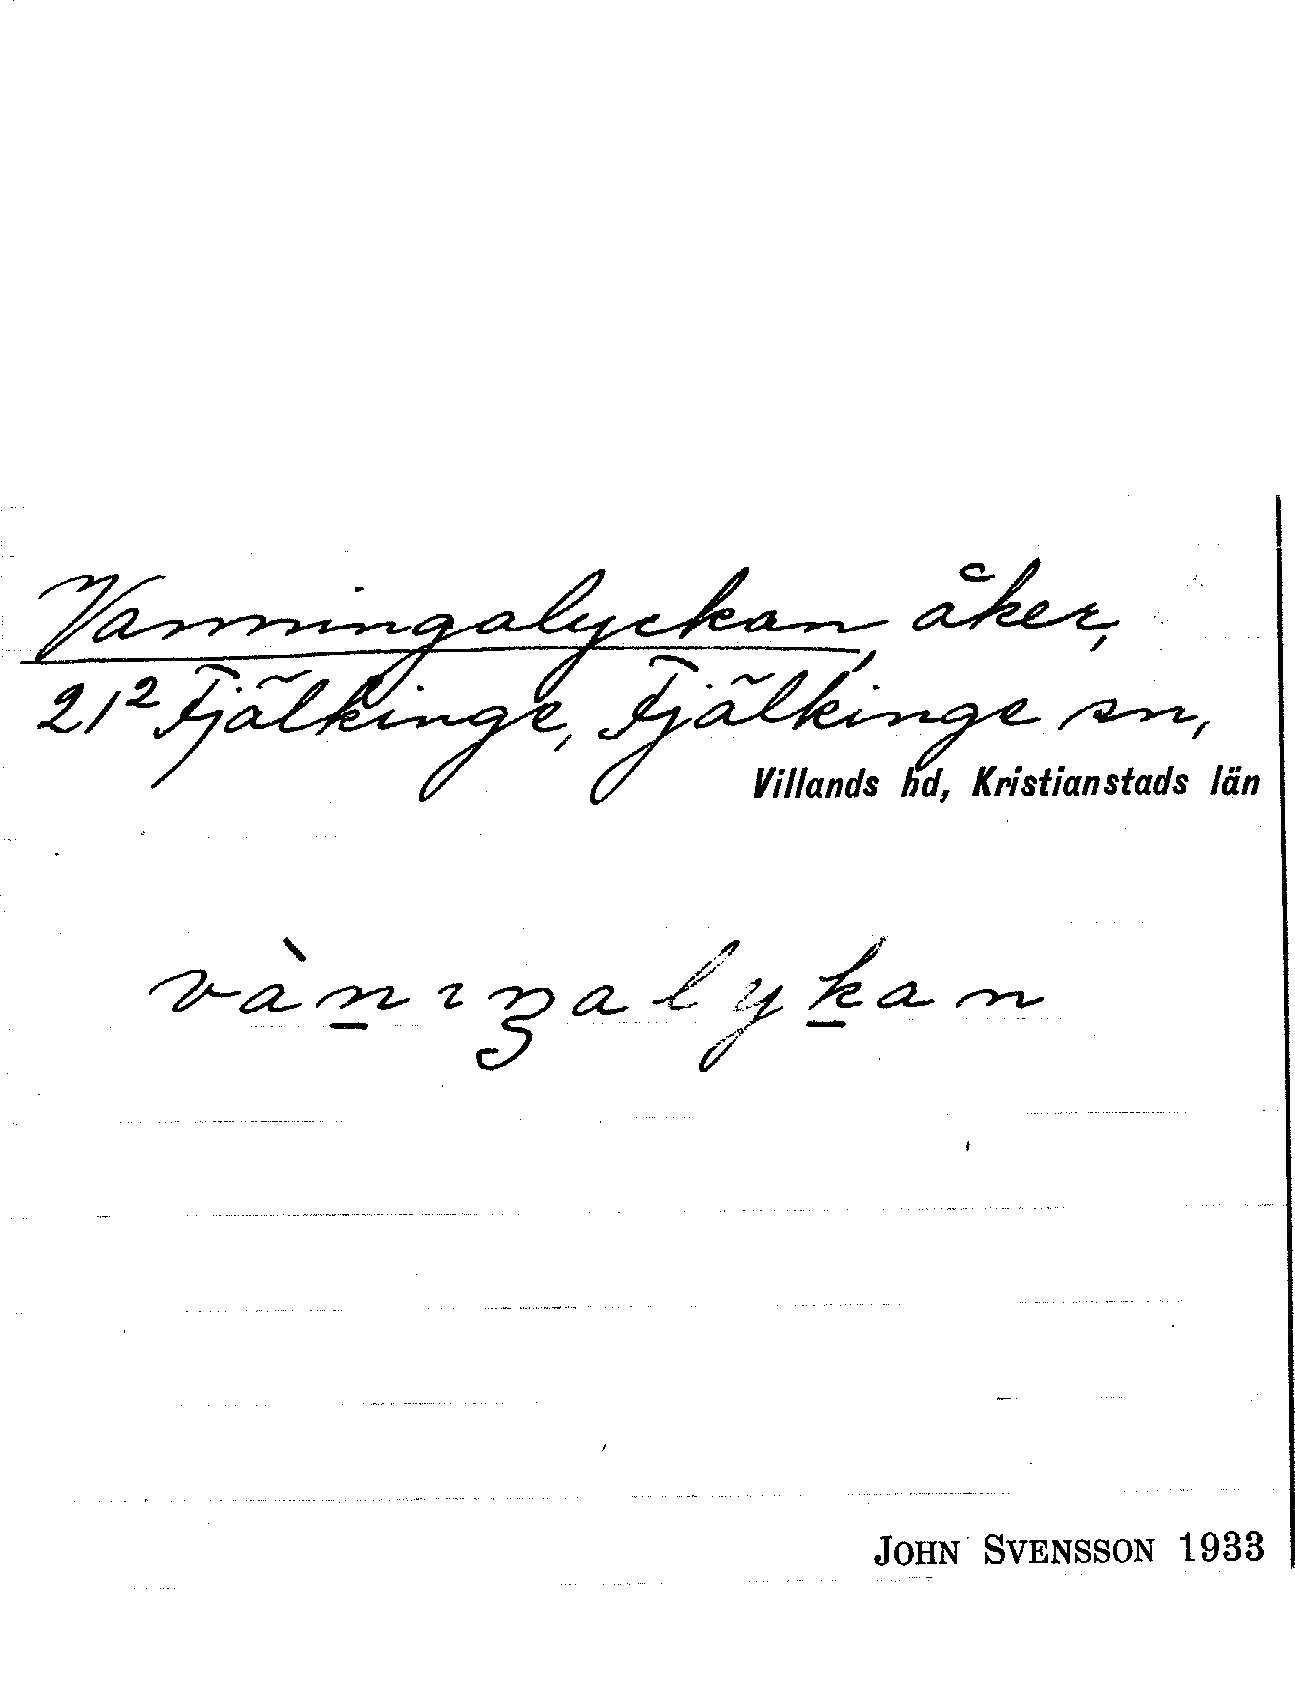 Vanningalyckan, åker,
21² Fjälkinge, Fjälkinge sn,
Villands hd, Kristianstads län
vàn̲ıŋalyk̲an
JOHN SVENSSON 1933